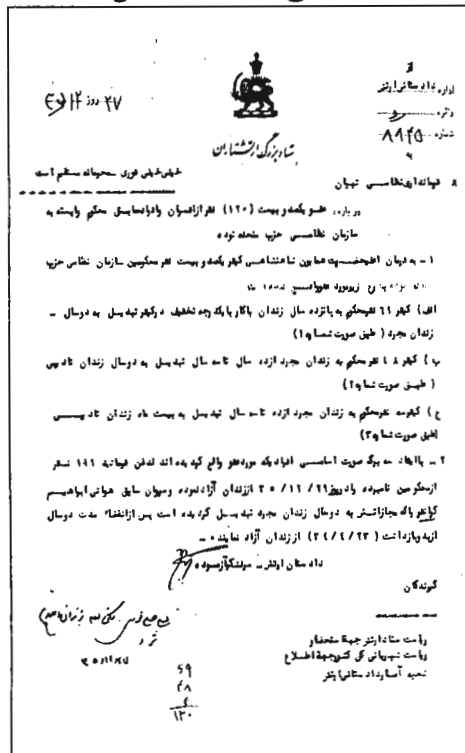 از
اداره دادستانی ارتش
دائره
شماره ۸۹۴۵
به
ستاد بزرگ ارتشتاران
خیلی خیلی فوری - محرمانه مستقیم است
فرمانداری نظامی تهران
درباره: عفو یکصد و بیست (۱۲۰) نفر از افسران و افراد سابق محکوم وابسته به
سازمان نظامی حزب منحله توده
۱ - به فرمان اعلیحضرت همایون شاهنشاهی کیفر یکصد و بیست نفر محکومین سازمان نظامی حزب
الف) کیفر ۶۹ نفر محکوم به پانزده سال زندان با کار با یک درجه تخفیف در کیفر تبدیل به دو سال -
زندان مجرد (طبق صورت شماره ۱)
ب) کیفر ۴۸ نفر محکوم به زندان مجرد از ده سال تا سه سال تبدیل به دو سال زندان تادیبی
(طبق صورت شماره ۲)
ج) کیفر سه نفر محکوم به زندان مجرد از ده تا سه سال تبدیل به بیست ماه زندان تادیبی
(طبق صورت شماره ۳)
۲ - با ایفاد سه برگ صورت اسامی افرادیکه مورد عفو واقع گردیده اند قدغن فرمائید ۱۱۹ نفر
از محکومین نامبرده را در روز ۳۵/۱۲/۲۹ از زندان آزاد نموده و سروان سابق هوائی ابراهیم
را که مجازاتش به دو سال زندان مجرد تبدیل گردیده است پس از انقضاء مدت دو سال
از بدو بازداشت از زندان آزاد نمایند -
دادستان ارتش - سرلشگر آزموده
گیرندگان
ریاست ستاد ارتش جهة استحضار
ریاست شهربانی کل کشور جهة اطلاع
شعبه آمار دادستانی ارتش
۶۹
۴۸
۱۲۰